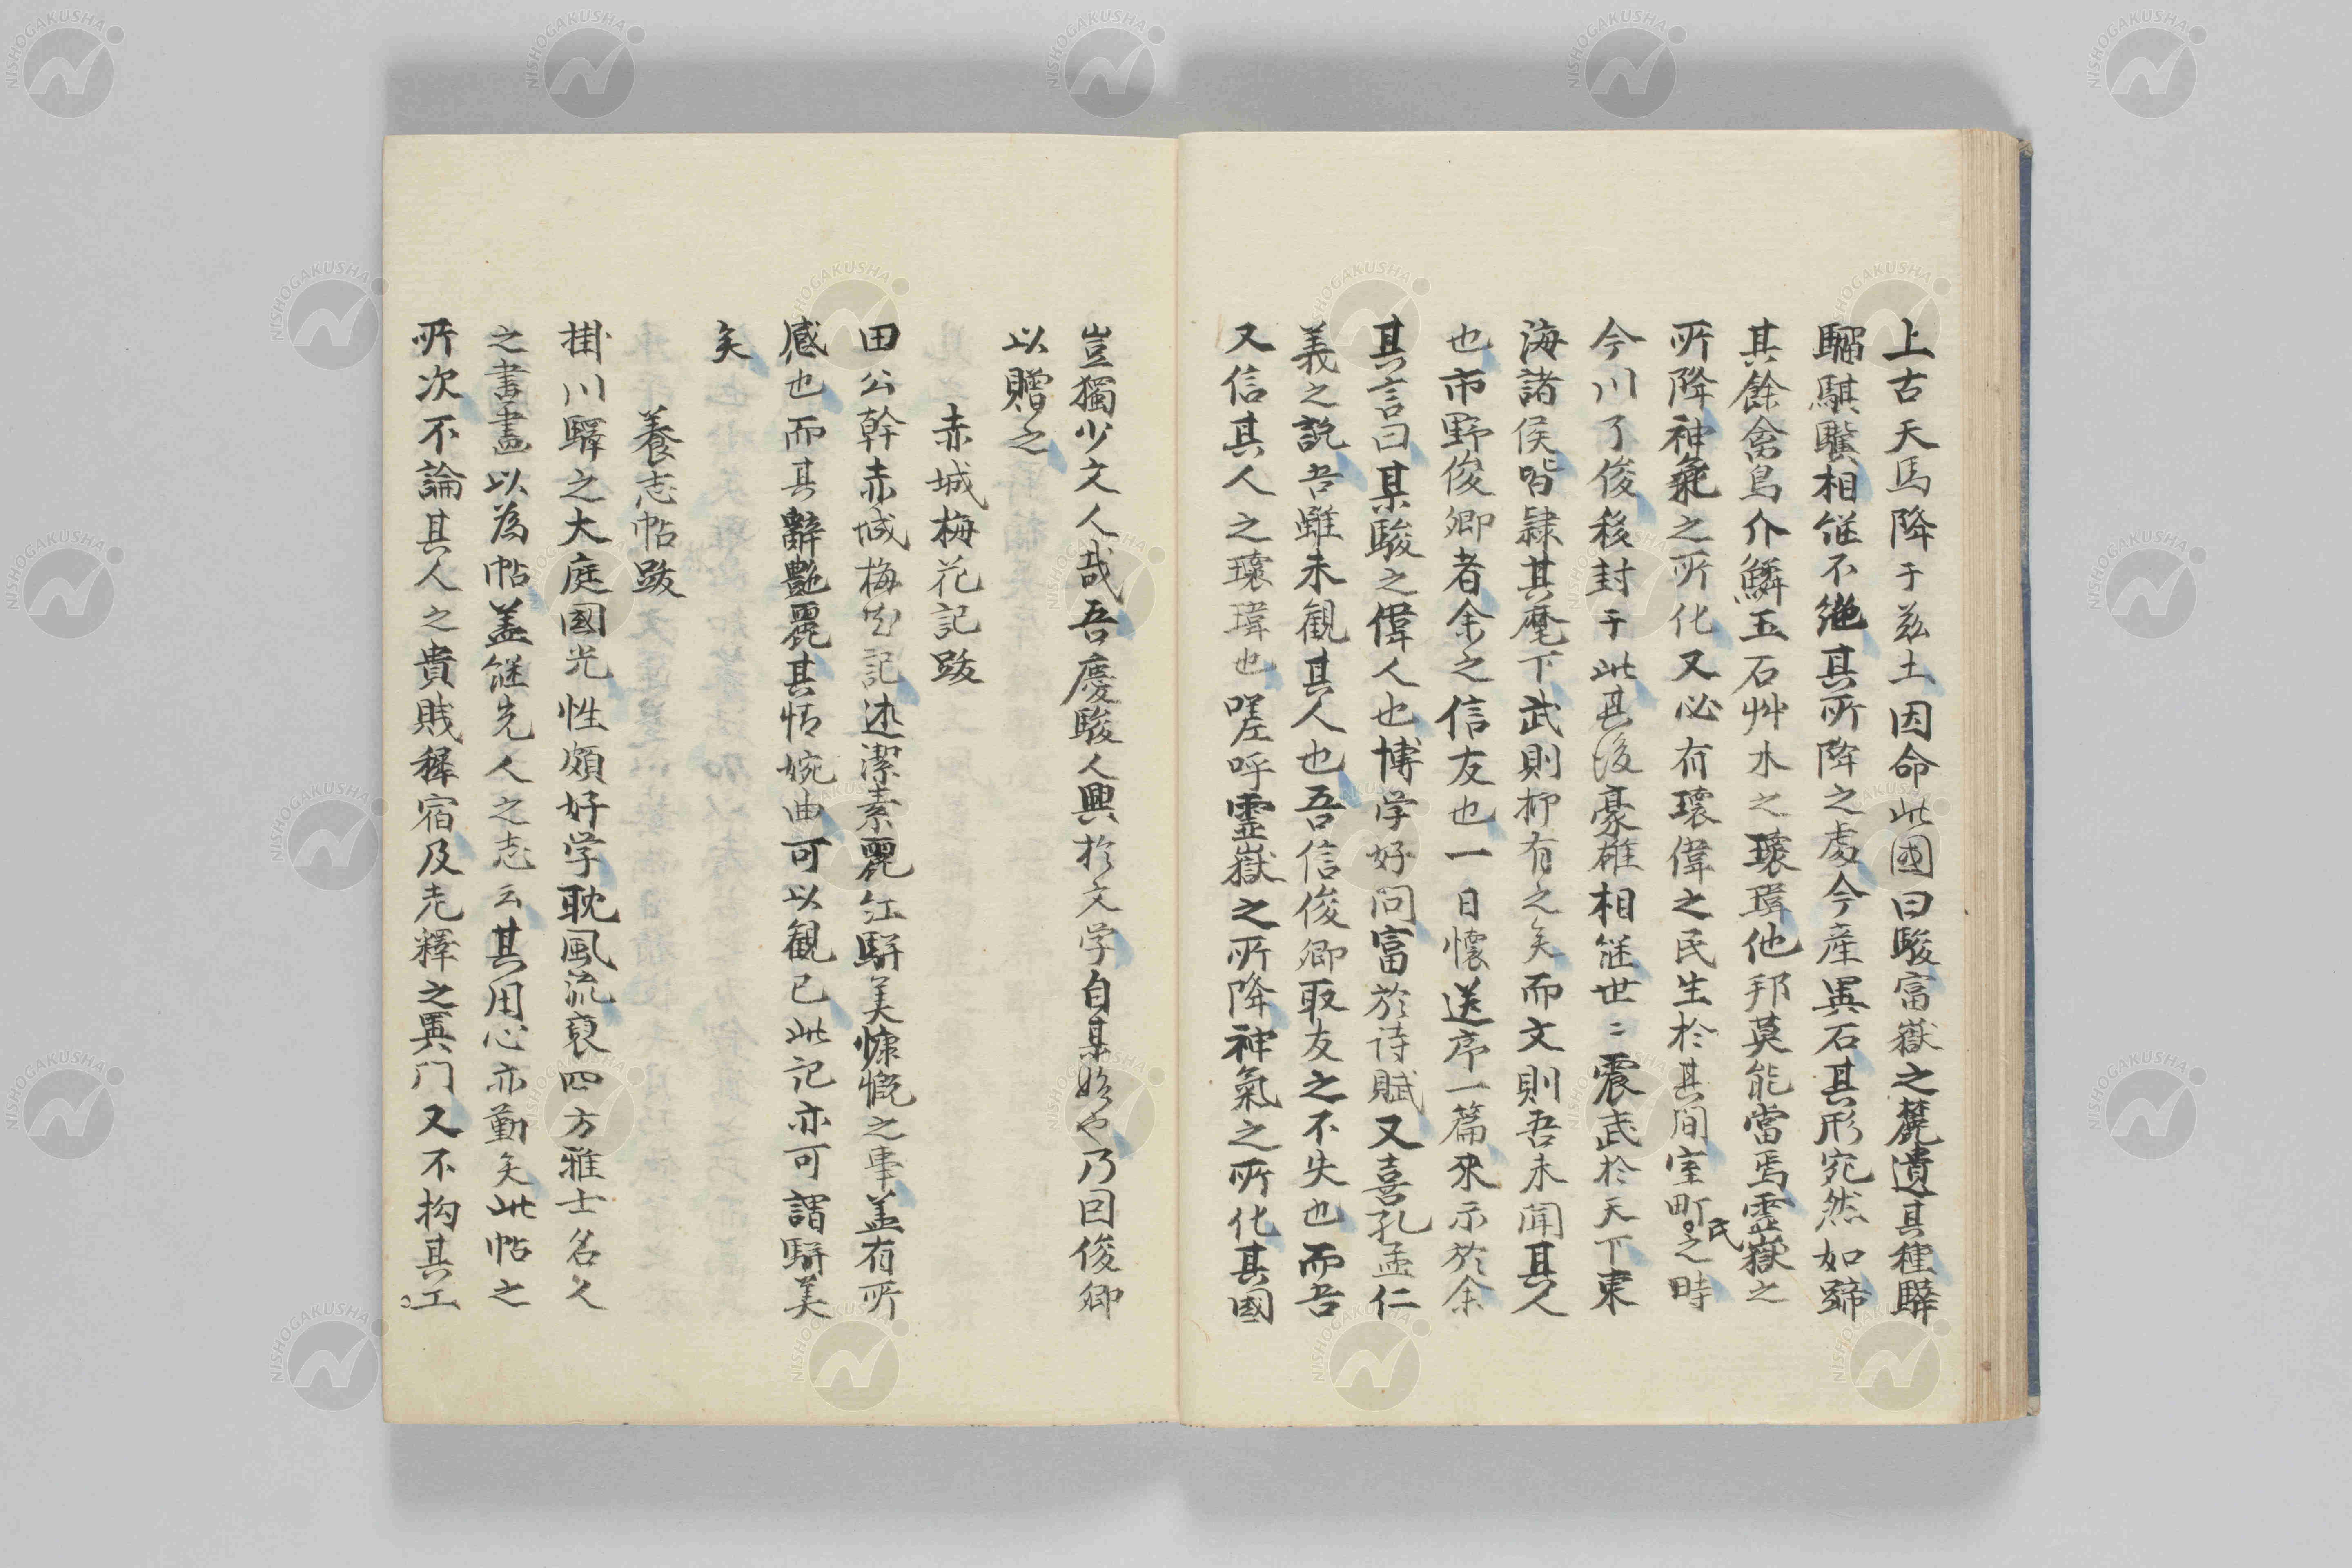 上古天馬降于茲土因命此國曰駿富嶽之麓遺其種驛
騮騏驥相継不絶其所降之處今産異石其形宛然如蹄
其餘禽鳥介鱗玉石艸木之瓌瑋他邦莫能當焉霊嶽之
所降神氣之所化又必有瓌偉之民生於其間室町氏之時
今川了俊移封于此其後豪雄相継世〻震武於天下東
海諸侯皆隷其麾下武則抑有之矣而文則吾未聞其人
也市野俊卿者余之信友也一日懷送序一篇来示於余
其言曰某駿之偉人也博学好问富於诗賦又喜孔孟仁
義之説吾雖未観其人也吾信俊卿取友之不失也而吾
又信其人之瓌瑋也嗟呼霊嶽之所降神氣之所化其國
豈獨少文人哉吾慶駿人興於文学自某始也乃囙俊卿
以贈之
赤城梅花記跋
田公幹赤城梅花記述潔素麗红駢美慷慨之事盖有所
感也而其辭艶麗其情婉曲可以観已此记亦可謂駢美
矣
養志帖跋
掛川驛之大庭國光性頗好学耽風流裒四方雅士名人
之書畫以為帖盖継先人之志云其用心亦勤矣此帖之
所次不論其人之貴賎稺宿及老釋之異门又不拘其工